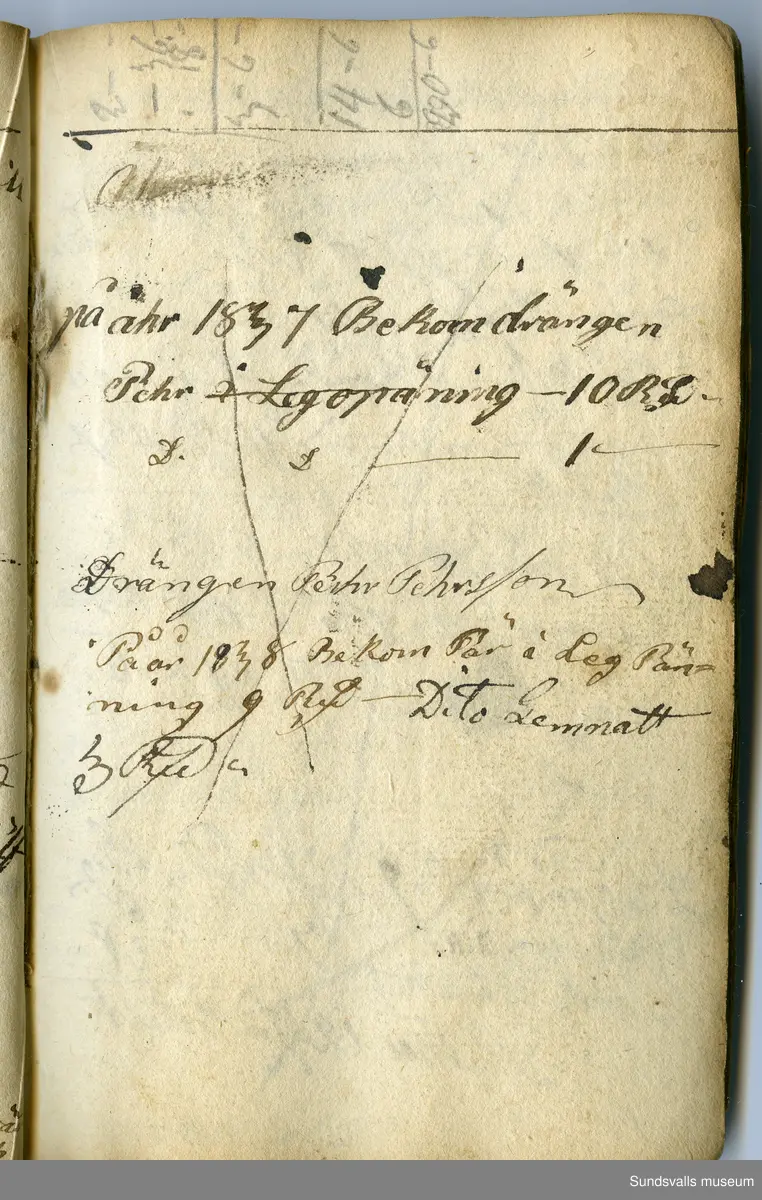 på åhr 1837 Bekom drängen
Pehr i Legopäning — 10 RD.
D. D — 1 —
Drängen Pehr Pehrsson
På år 1838 Bekom Pär i Leg Pän=
ning 9 RD — Dito Lemnatt
3 RD
Sundsvalls museum